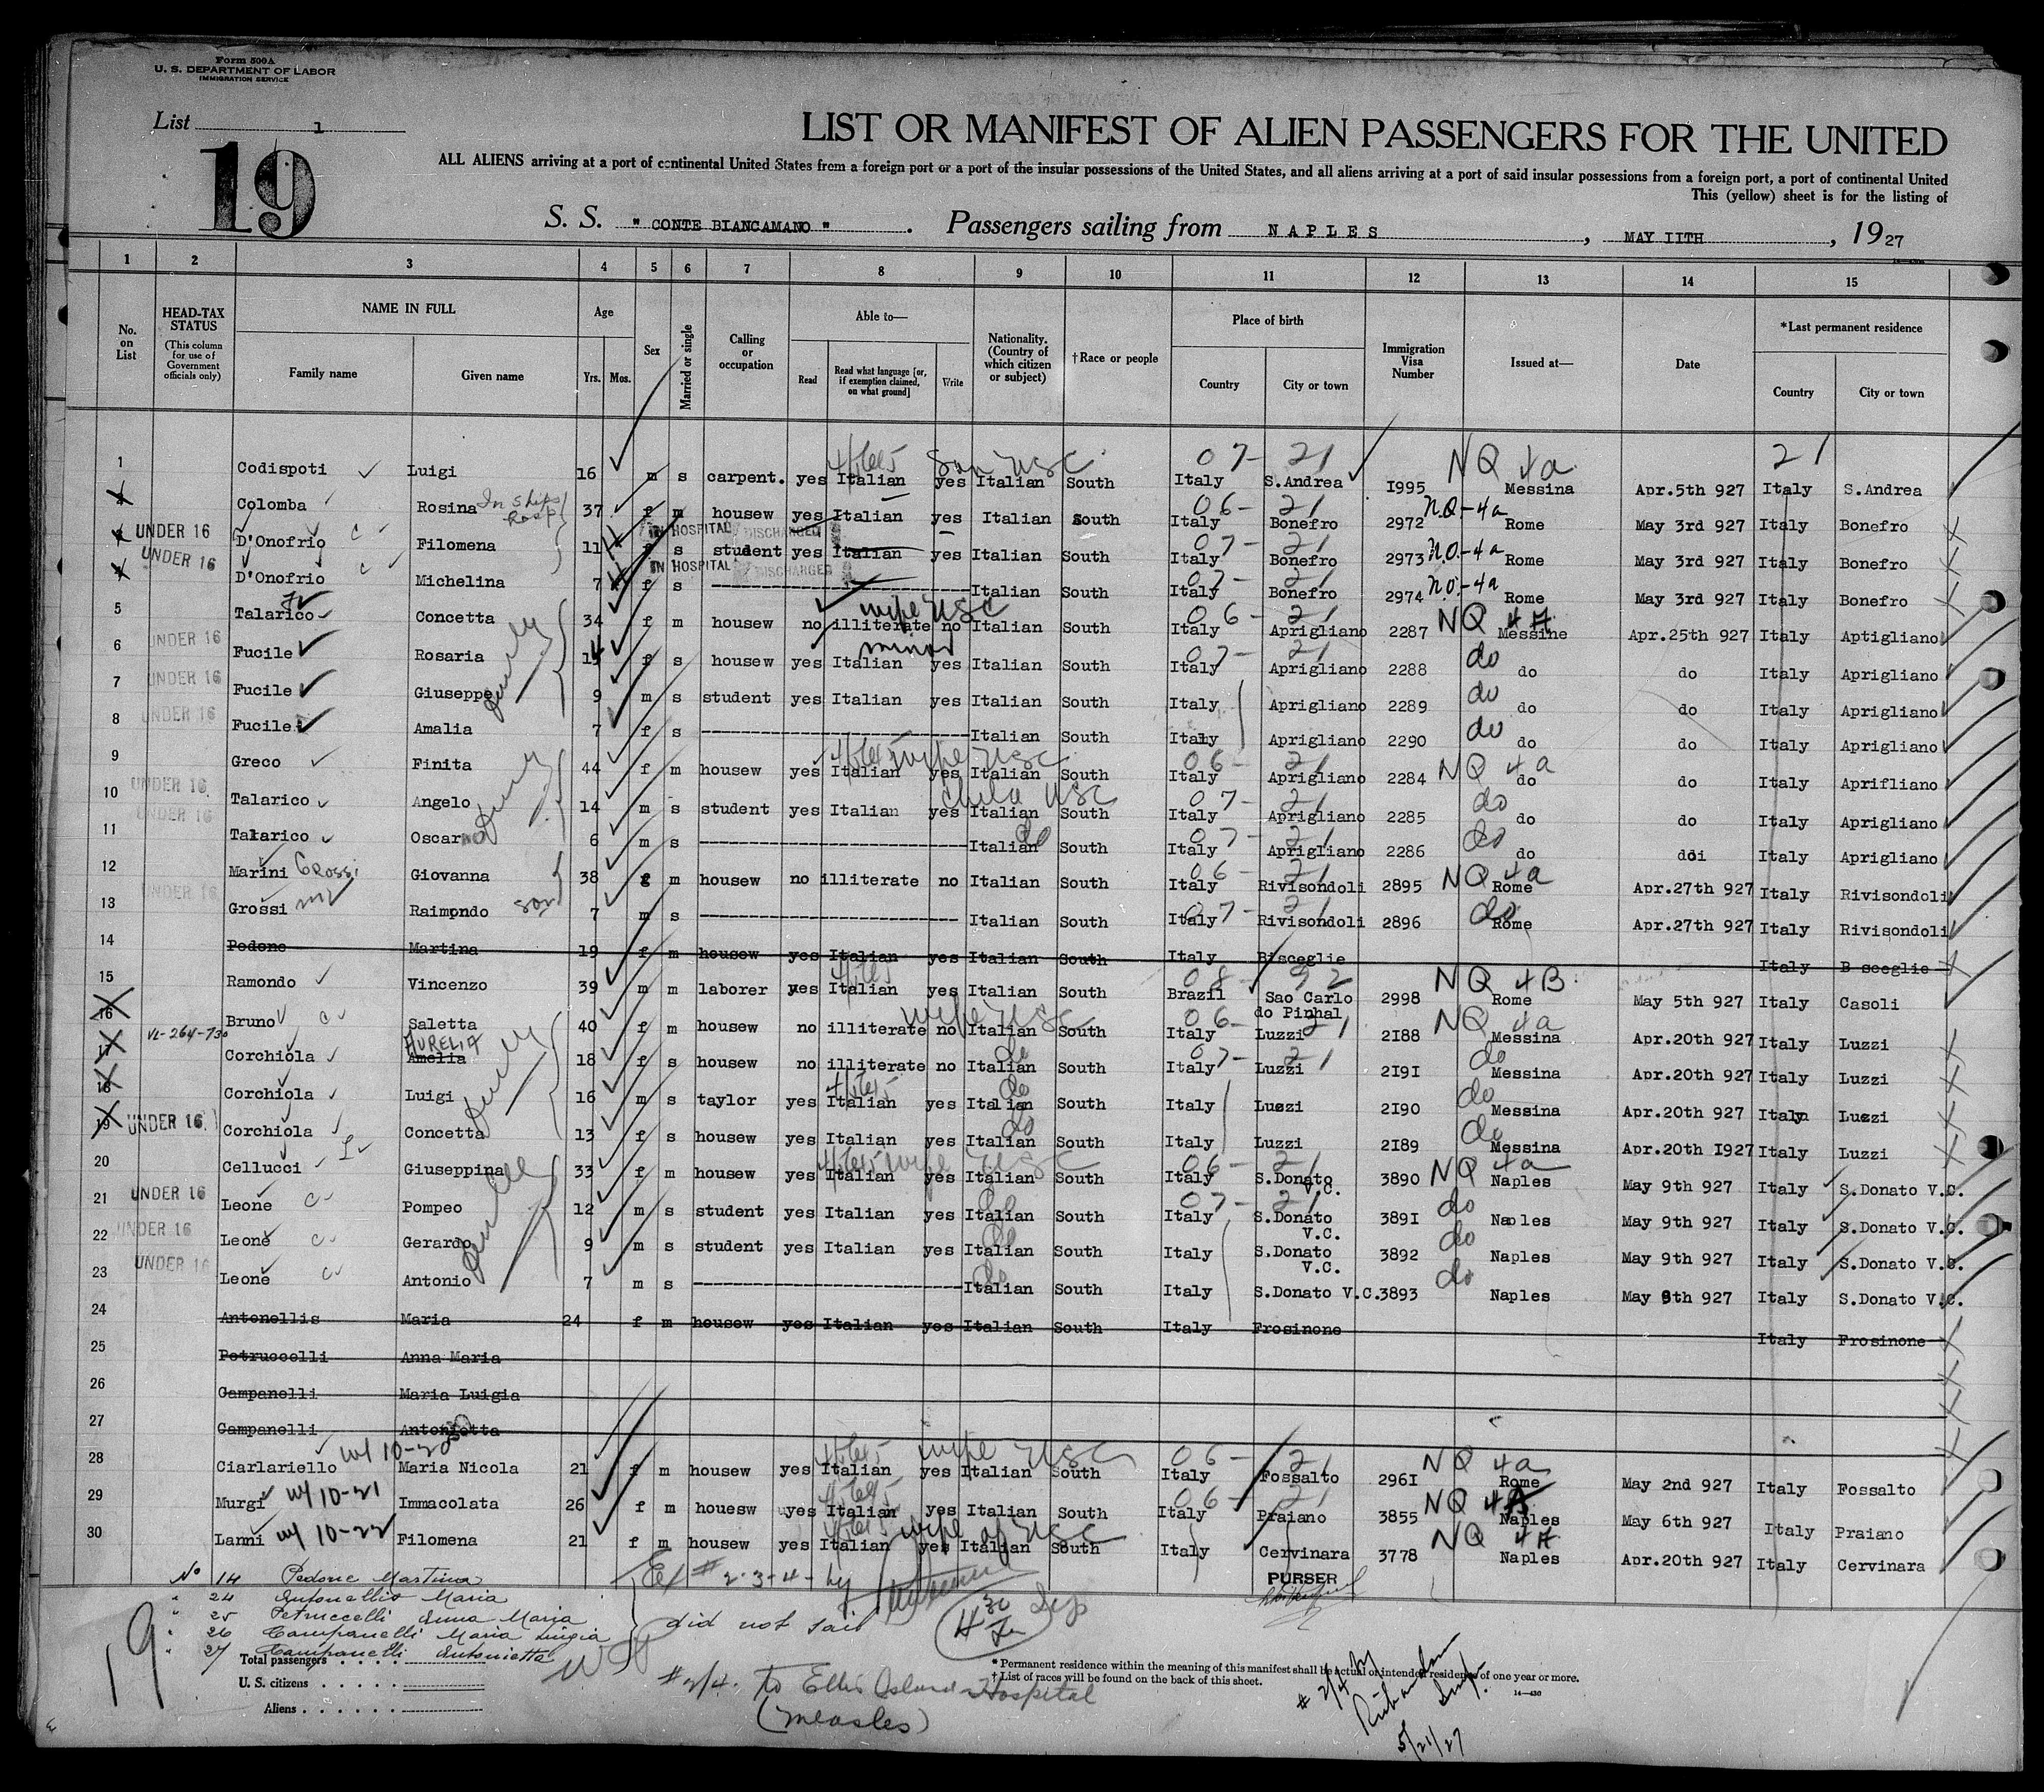 Form 500A
U. S. DEPARTMENT OF LABOR
IMMIGRATION SERVICE
List 1
19
LIST OR MANIFEST OF ALIEN PASSENGERS FOR THE UNITED
ALL ALIENS arriving at a port of continental United States from a foreign port or a port of the insular possessions of the United States, and all aliens arriving at a port of said insular possessions from a foreign port, a port of continental United
This (yellow) sheet is for the listing of
S. S. " CONTE BIANCAMANO " . Passengers sailing from NAPLES , MAY IITH , 1927
1 2 3 4 5 6 7 8 9 10 11 12 13 14 15
No. on List
HEAD-TAX STATUS (This column for use of Government officials only)
NAME IN FULL Family name Given name
Age Yrs. Mos.
Sex
Married or single
Calling or occupation
Able to— Read Read what language [or, if exemption claimed, on what ground] Write
Nationality. (Country of which citizen or subject)
†Race or people
Place of birth Country City or town
Immigration Visa Number
Issued at—
Date
*Last permanent residence Country City or town
1 Codispoti Luigi 16 m s carpent. yes Italian yes Italian South Italy S.Andrea I995 NQ 4a Messina Apr.5th 927 Italy S.Andrea
Son USC 07- 21 21
Colomba Rosina In Ships Hosp 37 f m housew yes Italian yes Italian South 06- 21 Italy Bonefro 2972 N.Q-4a Rome May 3rd 927 Italy Bonefro
UNDER 16 D'Onofrio C Filomena 11 f s IN HOSPITAL DISCHARGED student yes Italian yes Italian South 07- 21 Italy Bonefro 2973 N.Q.-4a Rome May 3rd 927 Italy Bonefro
UNDER 16 D'Onofrio C Michelina 7 f s IN HOSPITAL DISCHARGED Italian South 07- 21 Italy Bonefro 2974 N.Q.-4a Rome May 3rd 927 Italy Bonefro
5 Talarico Concetta 34 f m housew no illiterate no Italian South 06- 21 Italy Aprigliano 2287 NQ 4A Messine Apr.25th 927 Italy Aptigliano
wife USC
UNDER 16 6 Fucile Rosaria f s housew yes Italian yes Italian South 07- 21 Italy Aprigliano 2288 do do do Italy Aprigliano
minor
UNDER 16 7 Fucile Giuseppe family 9 m s student yes Italian yes Italian South Italy Aprigliano 2289 do do do Italy Aprigliano
UNDER 16 8 Fucile Amalia 7 f s Italian South Italy Aprigliano 2290 do do do Italy Aprigliano
9 Greco Finita 44 f m housew yes Italian yes Italian South 06- 21 Italy Aprigliano 2284 NQ 4a do do Italy Aprifliano
wife USC
UNDER 16 10 Talarico Angelo family 14 m s student yes Italian yes Italian South 07- 21 Italy Aprigliano 2285 do do do Italy Aprigliano
child USC
UNDER 16 11 Talarico Oscar 6 m s Italian do South 07- 21 Italy Aprigliano 2286 do do doi Italy Aprigliano
12 Marini Grossi Giovanna 38 f m housew no illiterate no Italian South 06- 21 Italy Rivisondoli 2895 NQ 4a Rome Apr.27th 927 Italy Rivisondoli
UNDER 16 13 Grossi Raimondo son 7 m s Italian South 07- 21 Italy Rivisondoli 2896 do Rome Apr.27th 927 Italy Rivisondoli
14 Pedone Martina 19 f m housew yes Italian yes Italian South Italy Bisceglie Italy B sceglie
15 Ramondo Vincenzo 39 m m laborer yes Italian yes Italian South 08- 92 Brazil Sao Carlo do Pinhal 2998 NQ 4B Rome May 5th 927 Italy Casoli
16 Bruno C Saletta 40 f m housew no illiterate no Italian South 06- 21 Italy Luzzi 2I88 NQ 4a Messina Apr.20th 927 Italy Luzzi
wife USC
17 VL-264-730 Corchiola AURELIA Amelia 18 f s housew no illiterate no Italian do South 07- 21 Italy Luzzi 2I9I do Messina Apr.20th 927 Italy Luzzi
18 Corchiola Luigi family 16 m s taylor yes Italian yes Italian do South Italy Luzzi 2I90 do Messina Apr.20th 927 Italy Luzzi
19 UNDER 16 Corchiola Concetta 13 f s housew yes Italian yes Italian do South Italy Luzzi 2I89 do Messina Apr.20th I927 Italy Luzzi
20 Cellucci Giuseppina 33 f m housew yes Italian yes Italian South 06- 21 Italy S.Donato V.C. 3890 NQ 4a Naples May 9th 927 Italy S.Donato V.C.
wife USC
21 UNDER 16 Leone C Pompeo 12 m s student yes Italian yes Italian do South 07- 21 Italy S.Donato V.C. 389I do Naples May 9th 927 Italy S.Donato V.C.
22 UNDER 16 Leone C Gerardo family 9 m s student yes Italian yes Italian do South Italy S.Donato V.C. 3892 do Naples May 9th 927 Italy S.Donato V.C.
23 UNDER 16 Leone C Antonio 7 m s Italian do South Italy S.Donato V.C. 3893 do Naples May 9th 927 Italy S.Donato V.C.
24 Antonellis Maria 24 f m housew yes Italian yes Italian South Italy Frosinone Italy Frosinone
25 Petruccelli Anna Maria
26 Campanelli Maria Luigia
27 Campanelli Antonietta
28 Ciarlariello w/ 10-20 Maria Nicola 21 f m housew yes Italian yes Italian South 06- 21 Italy Fossalto 296I NQ 4a Rome May 2nd 927 Italy Fossalto
wife USC
29 Murgi w/ 10-21 Immacolata 26 f m houesw yes Italian yes Italian South 06- 21 Italy Praiano 3855 NQ 4A Naples May 6th 927 Italy Praiano
30 Lanni w/ 10-22 Filomena 21 f m housew yes Italian yes Italian South Italy Cervinara 3778 NQ 4A Naples Apr.20th 927 Italy Cervinara
wife of USC
PURSER
No 14 Pedone Martina
" 24 Antonellis Maria
" 25 Petruccelli Anna Maria
" 26 Campanelli Maria Luigia
" 27 Campanelli Antonietta
did not sail
19
# 2-3-4- by
Total passengers
U. S. citizens
Aliens
# 3/4. to Ellis Island Hospital
(measles)
* Permanent residence within the meaning of this manifest shall be actual or intended residence of one year or more.
† List of races will be found on the back of this sheet.
14—430
# 3/4 by
5/21/27